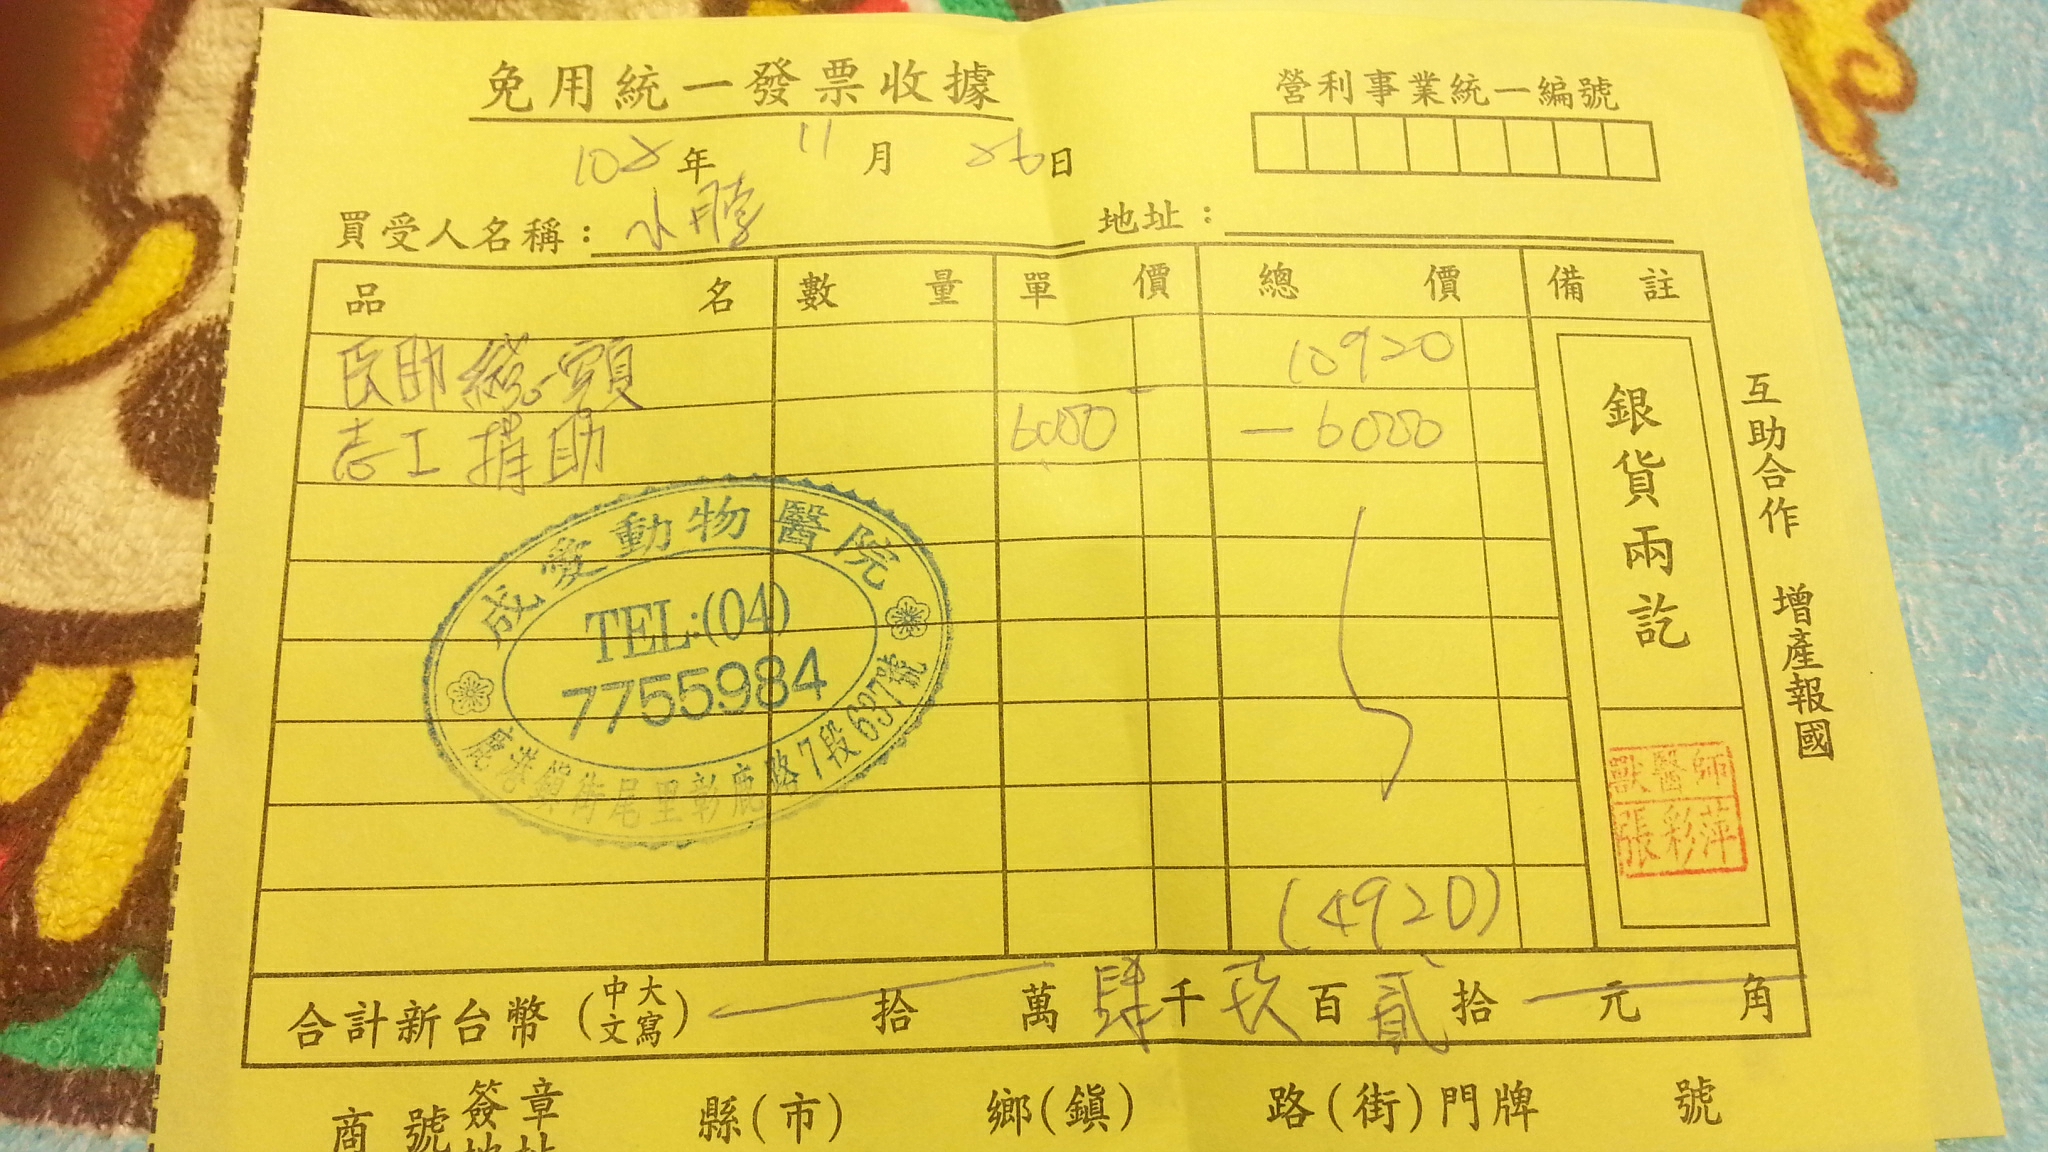 免用統一發票收據
營利事業統一編號
年 11月 26日
買受人名稱：
地址：
品名 數量 單價 總價 備註
總額 10920
志工捐助 6000 -6000
(4920)
銀貨兩訖
獸醫師
張彩萍
互助合作 增產報國
成愛動物醫院
TEL:(04)
7755984
鹿港鎮街尾里彰鹿路7段637號
合計新台幣(中文大寫) 拾 萬 肆千玖百貳拾 元 角
商號簽章 縣(市) 鄉(鎮) 路(街)門牌 號